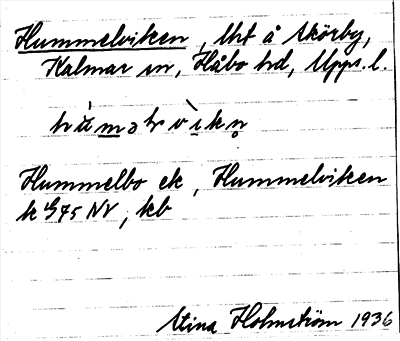 Hummelviken, Uht å Skörby,
Kalmar sn, Håbo hd, Upps. l.
Hummelbo ek, Hummelviken
k G75 NV, kb
Stina Holmström 1936